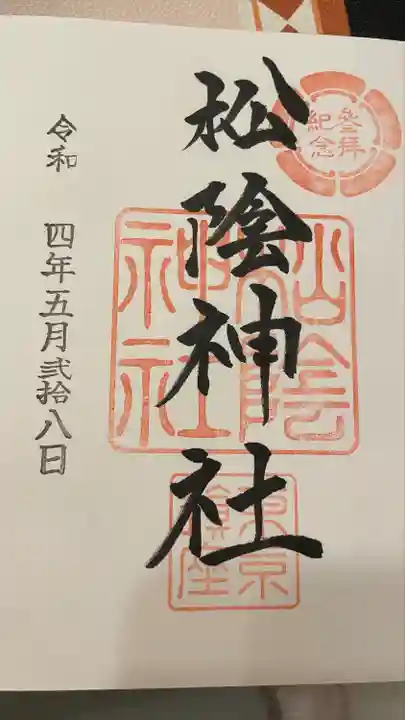 参拜
紀念
松陰神社
松陰
神社
東京
鎮座
令和 四年五月弐拾八日